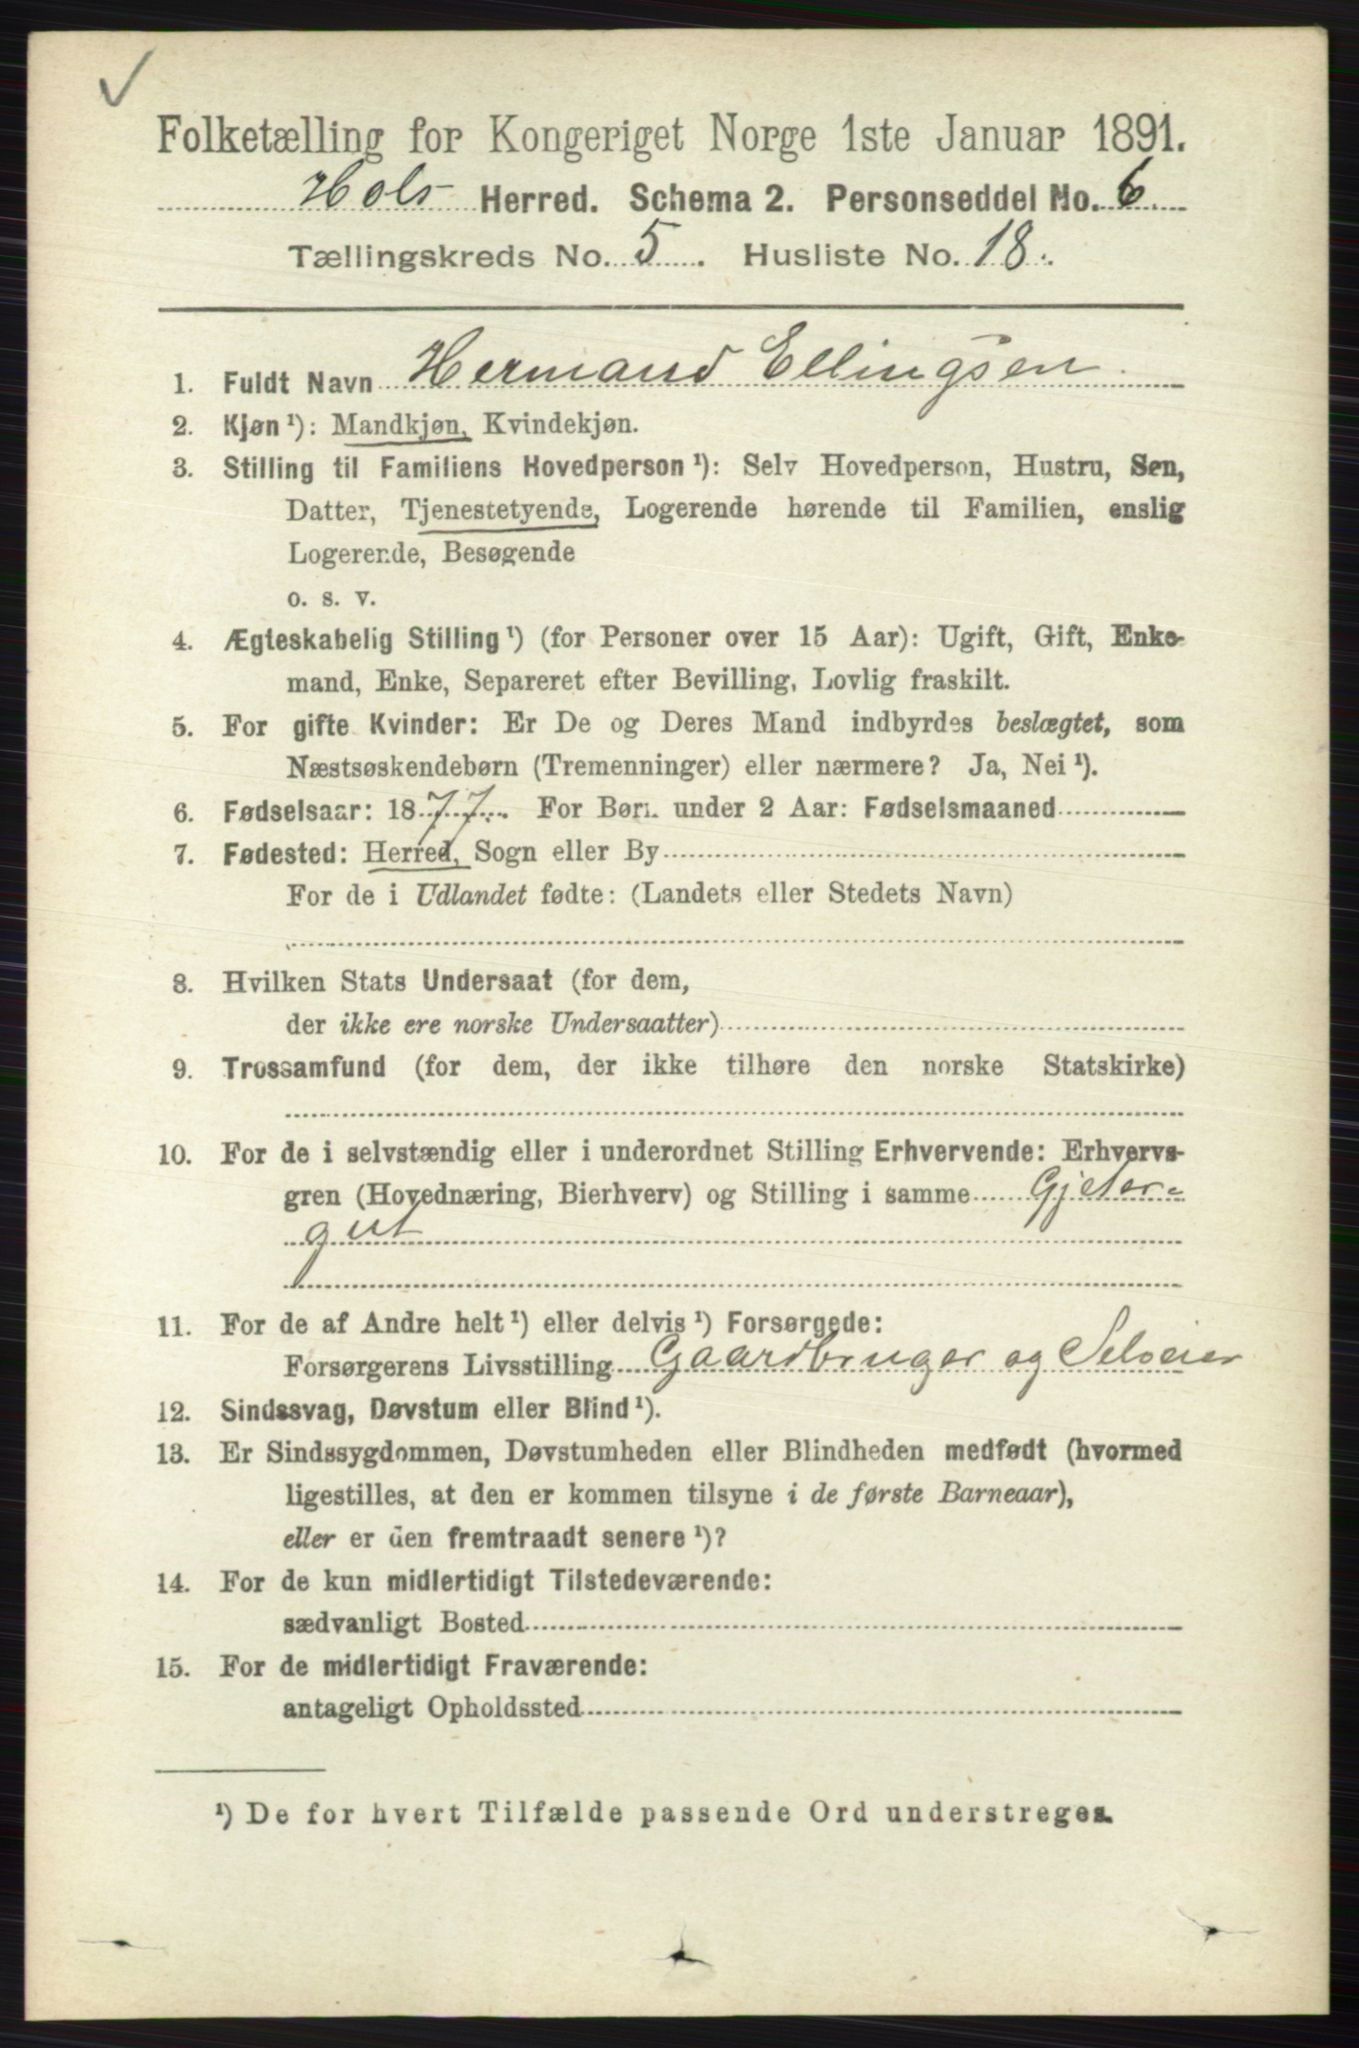 Folketælling for Kongeriget Norge 1ste Januar 1891.
Hols Herred. Schema 2. Personseddel No. 6.
Tællingskreds No. 5. Husliste No. 18.
1. Fuldt Navn Hermand Ellingsen.
2. Kjøn ¹): Mandkjøn, Kvindekjøn.
3. Stilling til Familiens Hovedperson ¹): Selv Hovedperson, Hustru, Søn,
Datter, Tjenestetyende, Logerende hørende til Familien, enslig
Logerende, Besøgende
o. s. v.
4. Ægteskabelig Stilling ¹) (for Personer over 15 Aar): Ugift, Gift, Enke-
mand, Enke, Separeret efter Bevilling, Lovlig fraskilt.
5. For gifte Kvinder: Er De og Deres Mand indbyrdes beslægtet, som
Næstsøskendebørn (Tremenninger) eller nærmere? Ja, Nei ¹).
6. Fødselsaar: 1877. For Børn under 2 Aar: Fødselsmaaned
7. Fødested: Herred, Sogn eller By
For de i Udlandet fødte: (Landets eller Stedets Navn)
8. Hvilken Stats Undersaat (for dem,
der ikke ere norske Undersaatter)
9. Trossamfund (for dem, der ikke tilhøre den norske Statskirke)
10. For de i selvstændig eller i underordnet Stilling Erhvervende: Erhvervs-
gren (Hovednæring, Bierhverv) og Stilling i samme Gjeter-
gut
11. For de af Andre helt ¹) eller delvis ¹) Forsørgede:
Forsørgerens Livsstilling Gaardbruger og Selveier
12. Sindssvag, Døvstum eller Blind ¹).
13. Er Sindssygdommen, Døvstumheden eller Blindheden medfødt (hvormed
ligestilles, at den er kommen tilsyne i de første Barneaar),
eller er den fremtraadt senere ¹)?
14. For de kun midlertidigt Tilstedeværende:
sædvanligt Bosted
15. For de midlertidigt Fraværende:
antageligt Opholdssted
¹) De for hvert Tilfælde passende Ord understreges.